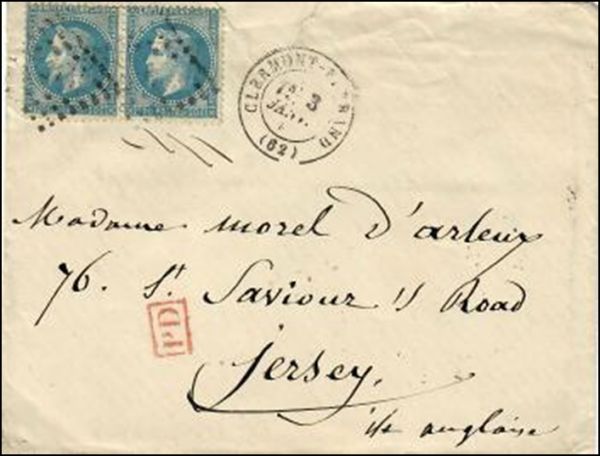 CLERMONT-FERRAND
3
JANV.
(62)
Madame Morel d'arleux
76. St Saviour's Road
PD
Jersey,
ile anglaise